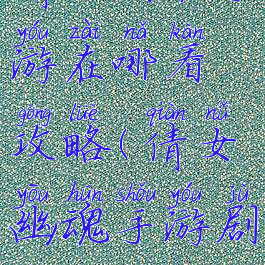 yóu zài nǎ kàn
游在哪看
gōng lüè qiàn nǚ
攻略(倩女
yōu hún shǒu yóu jù
幽魂手游剧